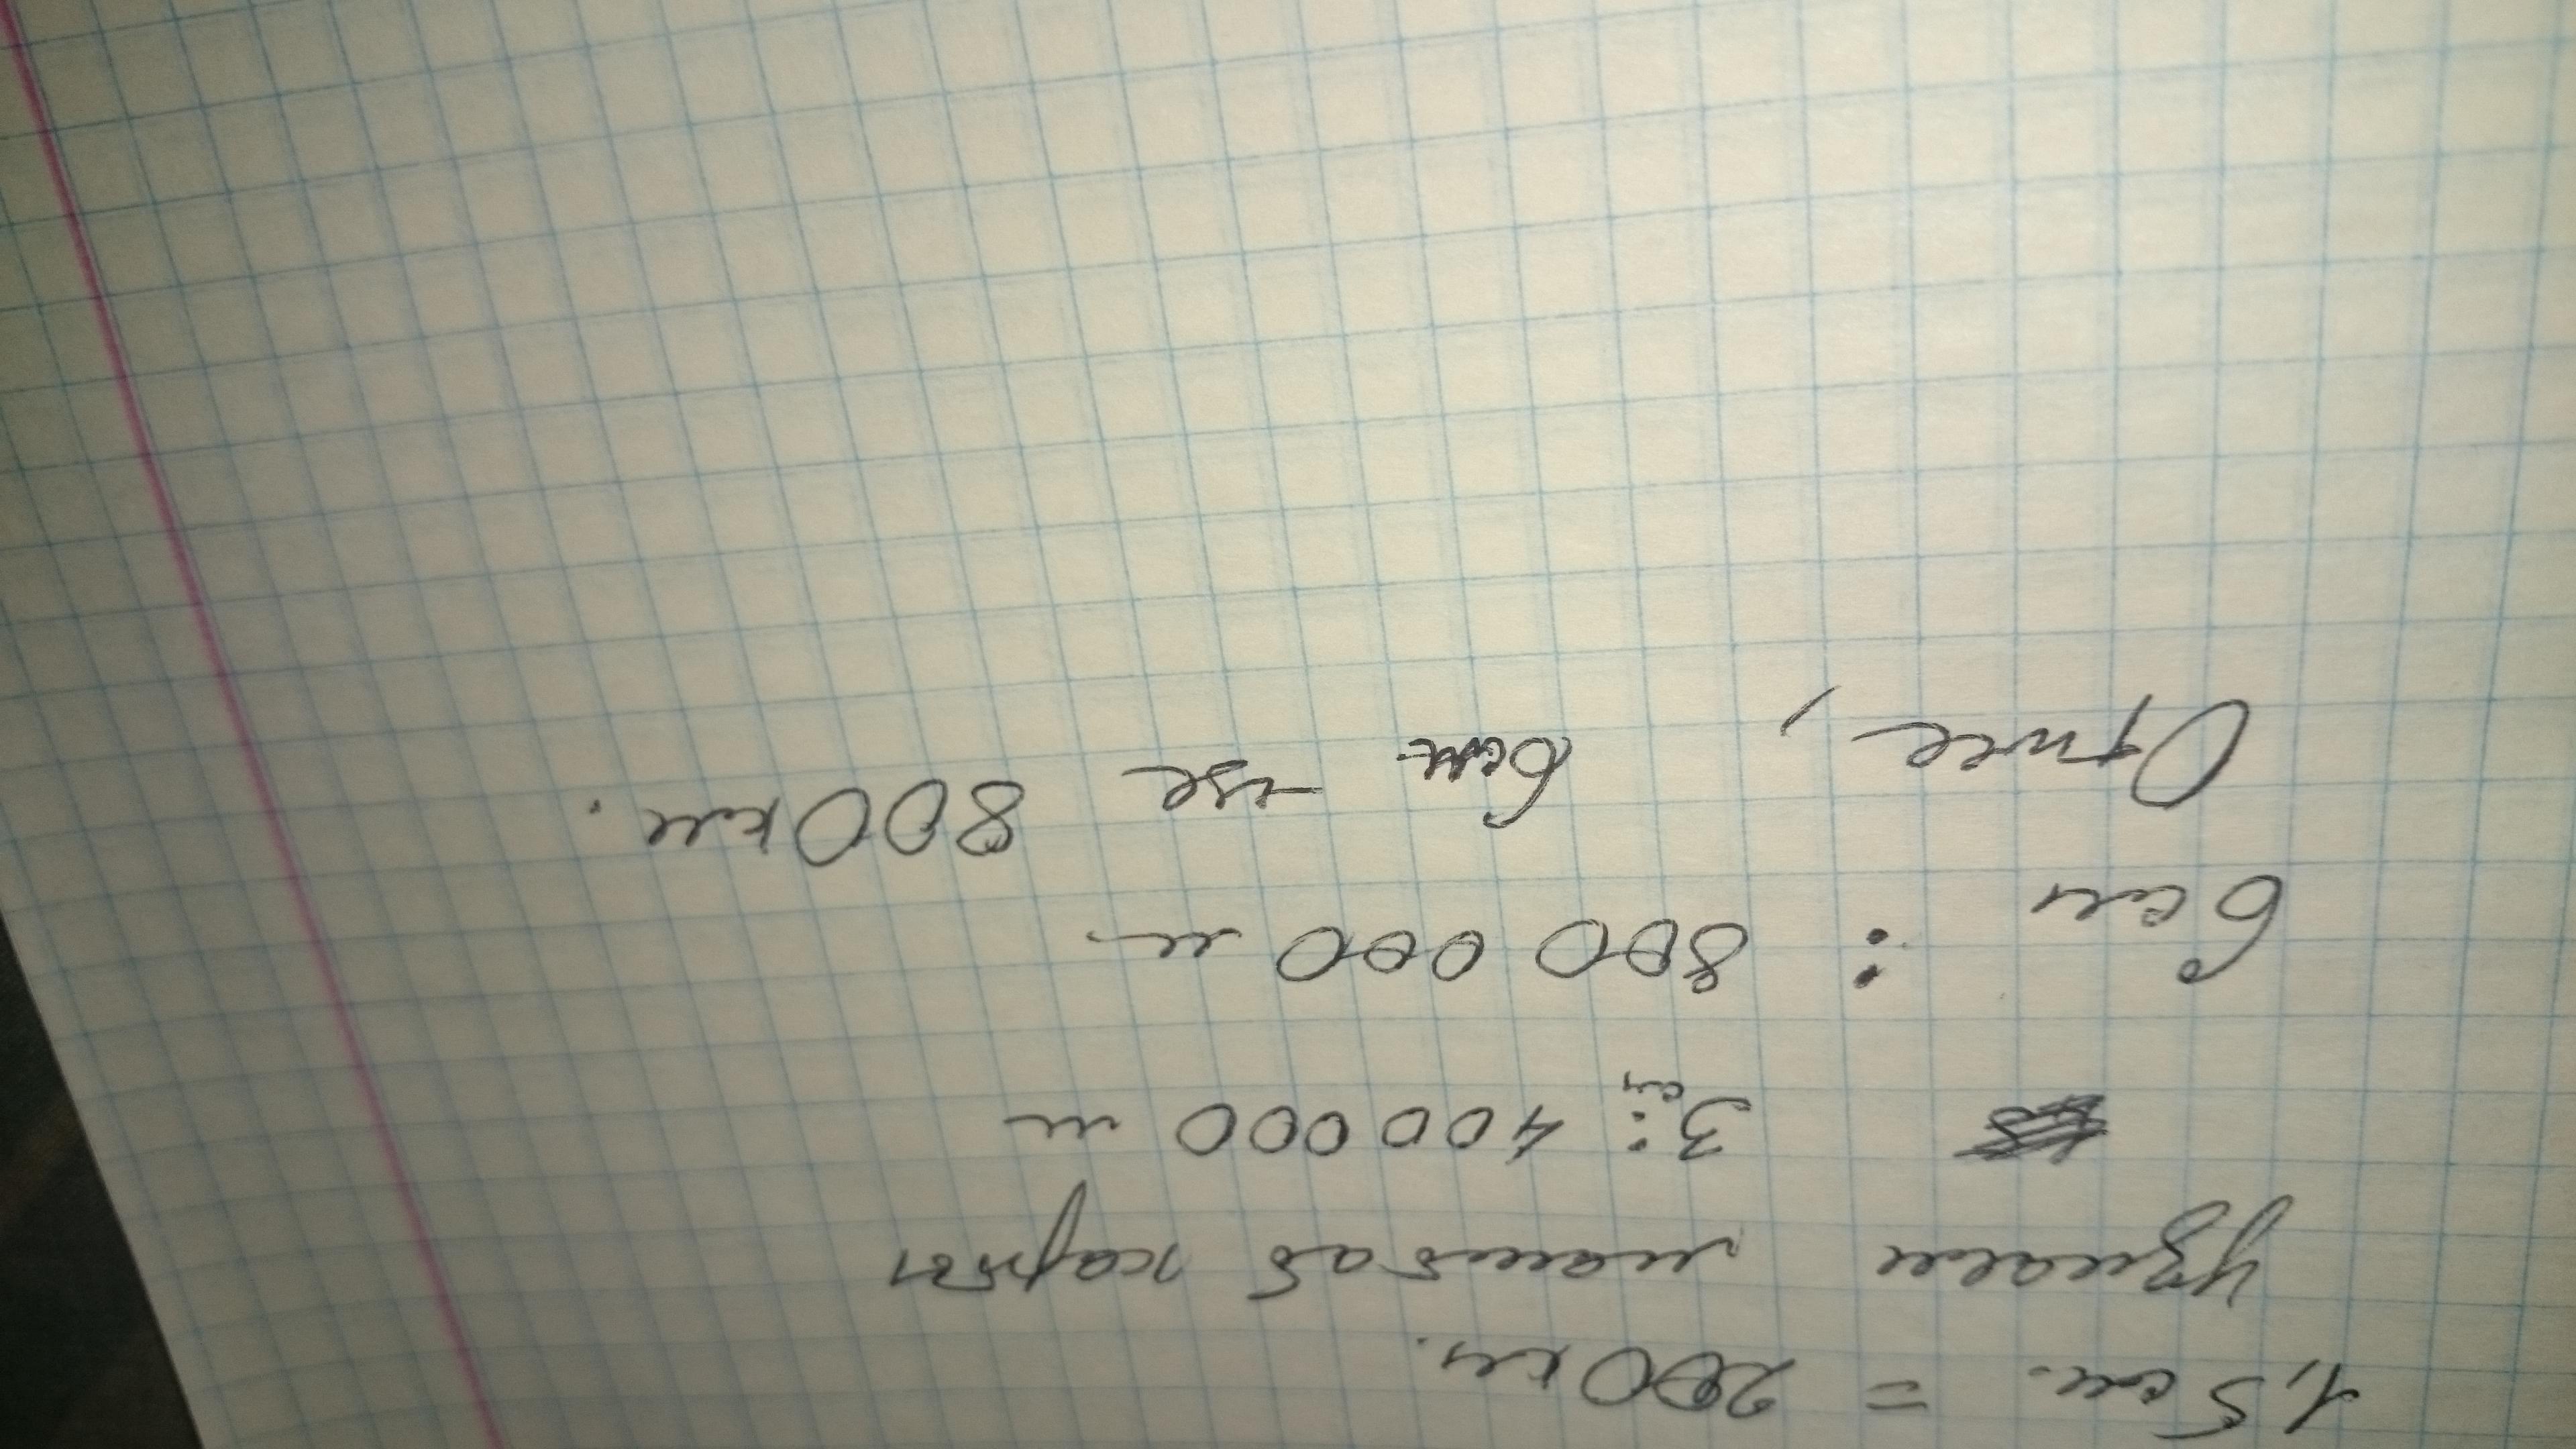 1,5 см. = 200 км.
Узнаем масштаб карты
3см: 400 000 м
6 см : 800 000 м
6см 800 км.